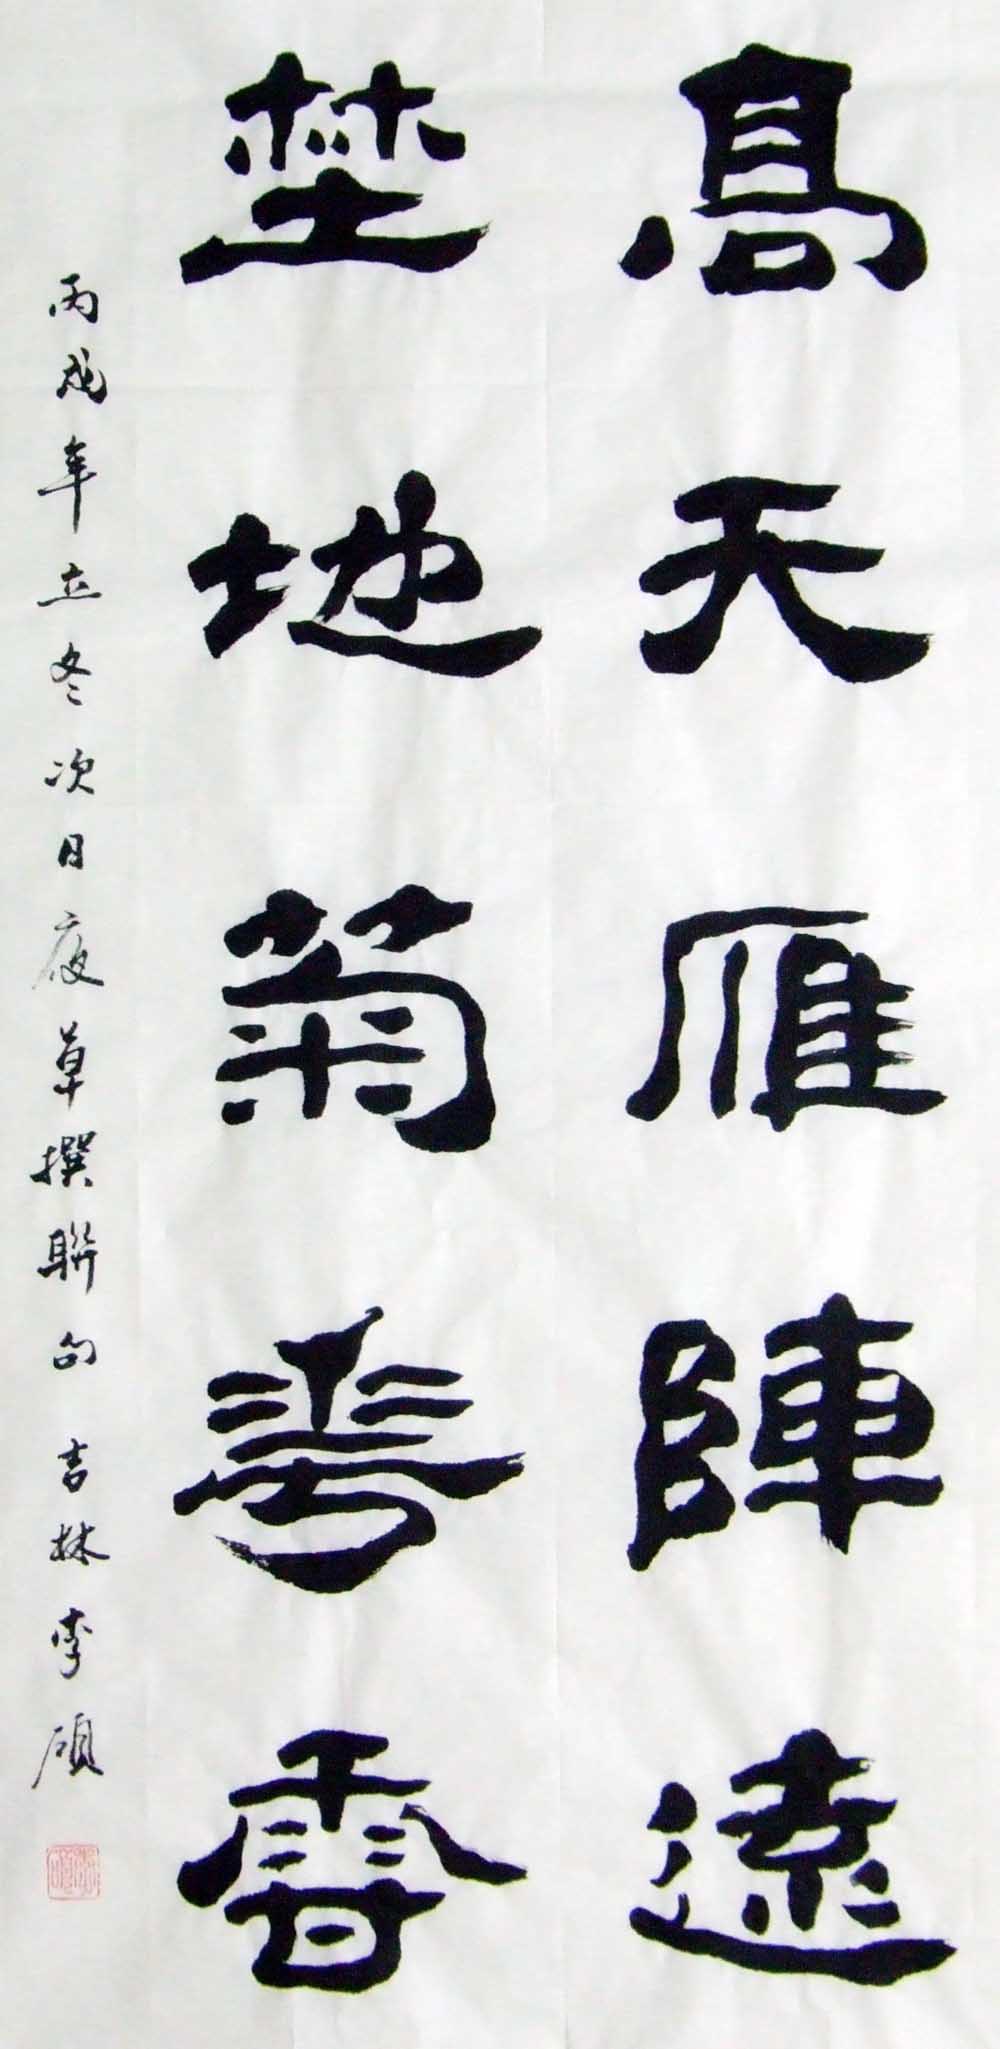 高天雁陣遠
埜地菊花香
丙戌年立冬次日夜草撰聯句 吉林李碩